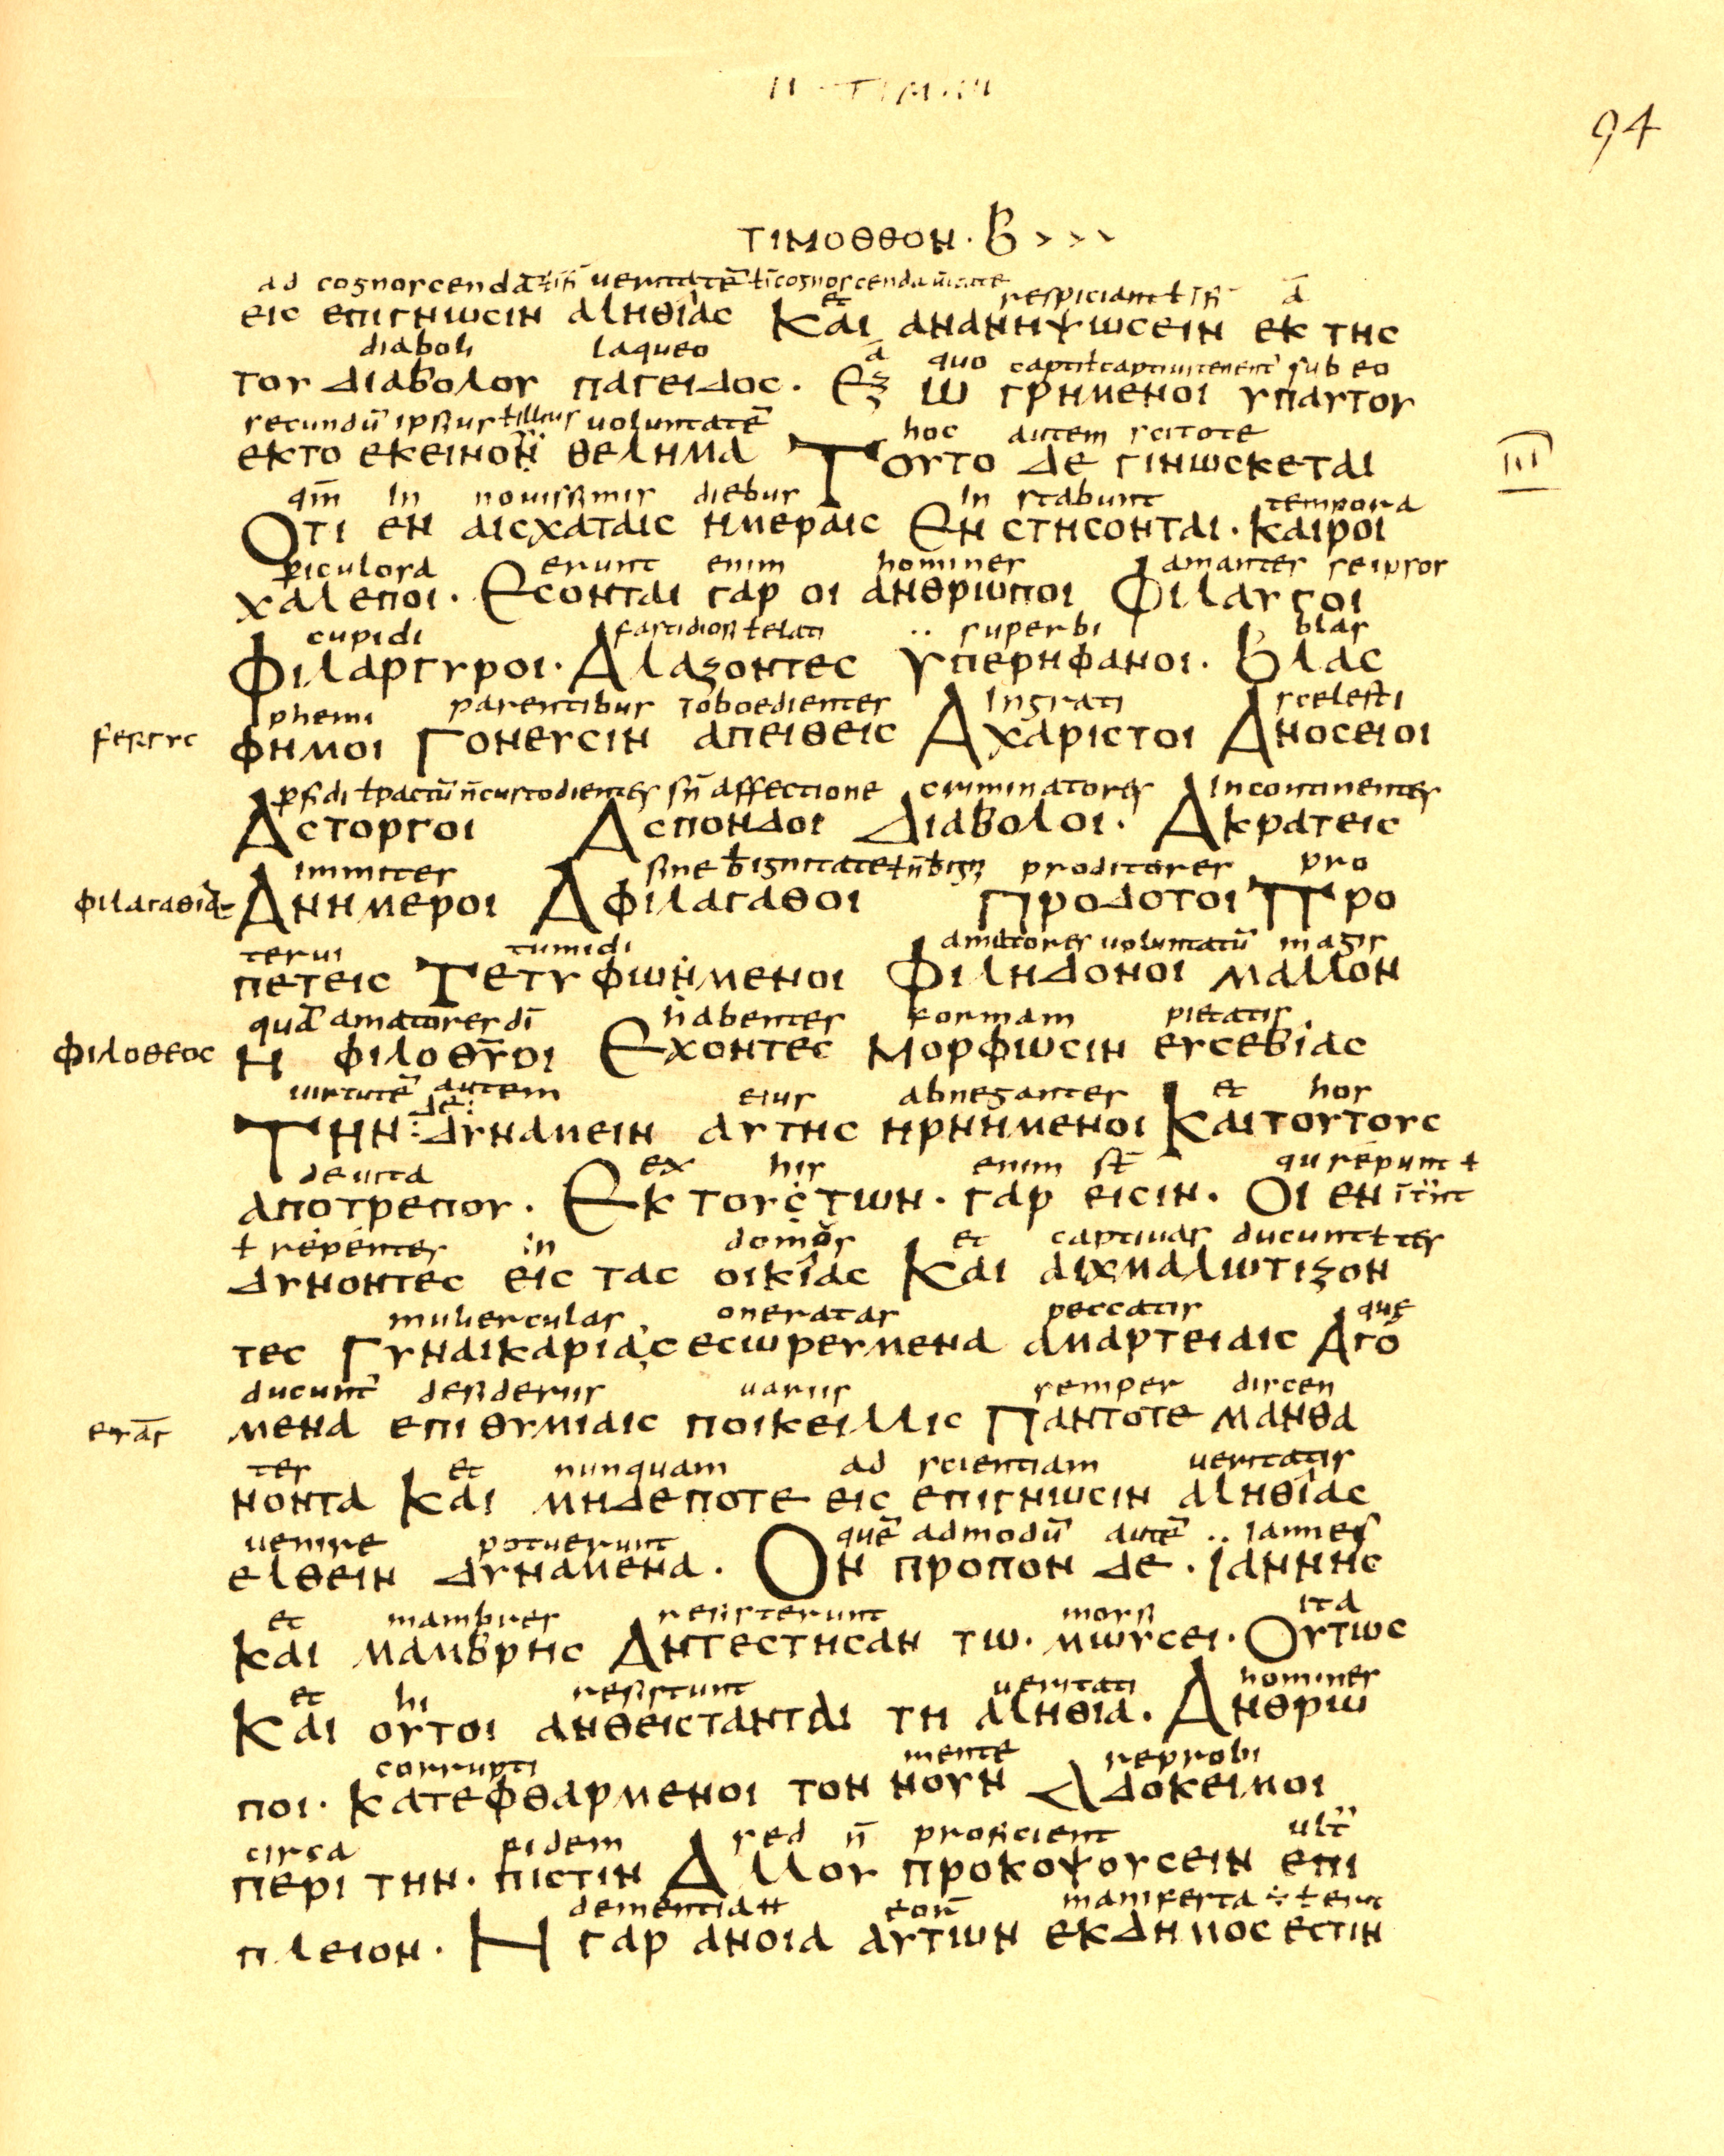 II · TIM · III
94
ΤΙΜΟΘΕΟΝ · Β > > >
ad cognoscendā veritatē
ΕΙC ΕΠΙΓΝΩCΙΝ ΑΛΗΘΙΑC ΚΑΙ ΑΝΑΝΗΨΩCΕΙΝ ΕΚ ΤΗC
et respiciant ā
diaboli laqueo ā quo sub eo
ΤΟΥ ΔΙΑΒΟΛΟΥ ΠΑΓΕΙΔΟC · ΕΞ Ω ΓΡΗΜΕΝΟΙ ΥΠΑΥΤΟΥ
secundū ipsius ł illius voluntatē hoc autem scitote
ΕΚΤΟ ΕΚΕΙΝΟΝ ΘΕΛΗΜΑ ΤΟΥΤΟ ΔΕ ΓΙΝΩCΚΕΤΑΙ
III
qm̄ in novissimis diebus in stabunt tempora
ΟΤΙ ΕΝ ΑΙCΧΑΤΑΙC ΗΜΕΡΑΙC ΕΝ CΤΗCΟΝΤΑΙ · ΚΑΙΡΟΙ
piculosa erunt enim homines amantes seipsos
ΧΑΛΕΠΟΙ · ΕCΟΝΤΑΙ ΓΑΡ ΟΙ ΑΝΘΡΙΩΠΟΙ ΦΙΛΑΥΓΟΙ
cupidi fastidiosi ł elati superbi blas
ΦΙΛΑΡΓΥΡΟΙ · ΑΛΑΖΟΝΤΕC ΥΠΕΡΗΦΑΝΟΙ · ΒΛΑC
phemi parentibus īoboedientes ingrati scelesti
ΦΗΜΟΙ ΓΟΝΕΥCΙΝ ΑΠΕΙΘΕΙC ΑΧΑΡΙCΤΟΙ ΑΝΟCΕΙΟΙ
pfidi ł pactū n̄ custodientes sn̄ affectione criminatores incontinentes
ΑCΤΟΡΓΟΙ ΑCΠΟΝΔΟΙ ΔΙΑΒΟΛΟΙ · ΑΚΡΑΤΕΙC
inmites sine proditores pro
ΑΝΗΜΕΡΟΙ ΑΦΙΛΑΓΑΘΟΙ ΠΡΟΔΟΤΟΙ ΠΡΟ
tervi tumidi amatores voluntatū magis
ΠΕΤΕΙC ΤΕΤΥΦΩΝΜΕΝΟΙ ΦΙΛΗΔΟΝΟΙ ΜΑΛΛΟΝ
quā amatores dī habentes formam pietatis
ΦΙΛΟΘΕΟC Η ΦΙΛΟΘΥΟΙ ΕΧΟΝΤΕC ΜΟΡΦΩCΙΝ ΕΥCΕΒΙΑC
virtutē autem eius abnegantes et hos
ΤΗΝ ΔΕ ΔΥΝΑΜΕΙΝ ΑΥΤΗC ΗΡΝΗΜΕΝΟΙ ΚΑΙ ΤΟΥΤΟΥC
devita ex his enim st̄ qui repunt ł
ΑΠΟΤΡΕΠΟΥ · ΕΚ ΤΟΥCΤΩΝ · ΓΑΡ ΕΙCΙΝ · ΟΙ ΕΝ
ł repentes in domos et captivas ducunt ł tes
ΔΥΝΟΝΤΕC ΕΙC ΤΑC ΟΙΚΙΑC ΚΑΙ ΑΙΧΜΑΛΩΤΙΖΟΝ
mulierculas oneratas peccatis que
ΤΕC ΓΥΝΑΙΚΑΡΙΑC ΕCΩΡΕΥΜΕΝΑ ΑΜΑΡΤΕΙΑΙC ΑΓΟ
ducunt̄ desideriis variis semper discen
ΜΕΝΑ ΕΠΙΘΥΜΙΑΙC ΠΟΙΚΕΙΛΛΙC ΠΑΝΤΟΤΕ ΜΑΝΘΑ
tes et nunquam ad scientiam veritatis
ΝΟΝΤΑ ΚΑΙ ΜΗΔΕΠΟΤΕ ΕΙC ΕΠΙΓΝΩCΙΝ ΑΛΗΘΙΑC
venire potuerunt quē admodū autē iannes
ΕΛΘΕΙΝ ΔΥΝΑΜΕΝΑ · ΟΝ ΠΡΟΠΟΝ ΔΕ · ΙΑΝΝΗC
et mambres resisterunt morsi ita
ΚΑΙ ΜΑΜΒΡΗC ΑΝΤΕCΤΗCΑΝ ΤΩ · ΜΩΥCΕΙ · ΟΥΤΩC
et hi resistunt veritati homines
ΚΑΙ ΟΥΤΟΙ ΑΝΘΕΙCΤΑΝΤΑΙ ΤΗ ΑΛΗΘΙΑ · ΑΝΘΡΙΩ
corrupti mente reprobi
ΠΟΙ · ΚΑΤΕΦΘΑΡΜΕΝΟΙ ΤΟΝ ΝΟΥΝ ΑΔΟΚΕΙΜΟΙ
circa fidem sed n̄ proficient ult̄
ΠΕΡΙ ΤΗΝ · ΠΙCΤΙΝ ΑΛΛΟΥ ΠΡΟΚΟΨΟΥCΕΙΝ ΕΠΙ
dementia eoꝝ manifesta
ΠΛΕΙΟΝ · Η ΓΑΡ ΑΝΟΙΑ ΑΥΤΩΝ ΕΚΔΗΜΟC ΕCΤΙΝ